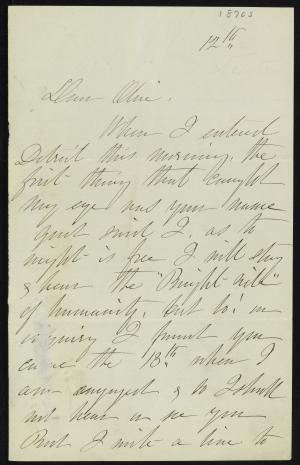 1870s
12th
Dear Olive.
When I entered
Detroit this morning, the
first thing that caught
my eye was your name
good said I, as to
night is free I will stay
& hear the "Bright side"
of humanity, but lo! on
inquiry I found you
came the 18th when I
am engaged & so I shall
not hear or see you
But I write a line to